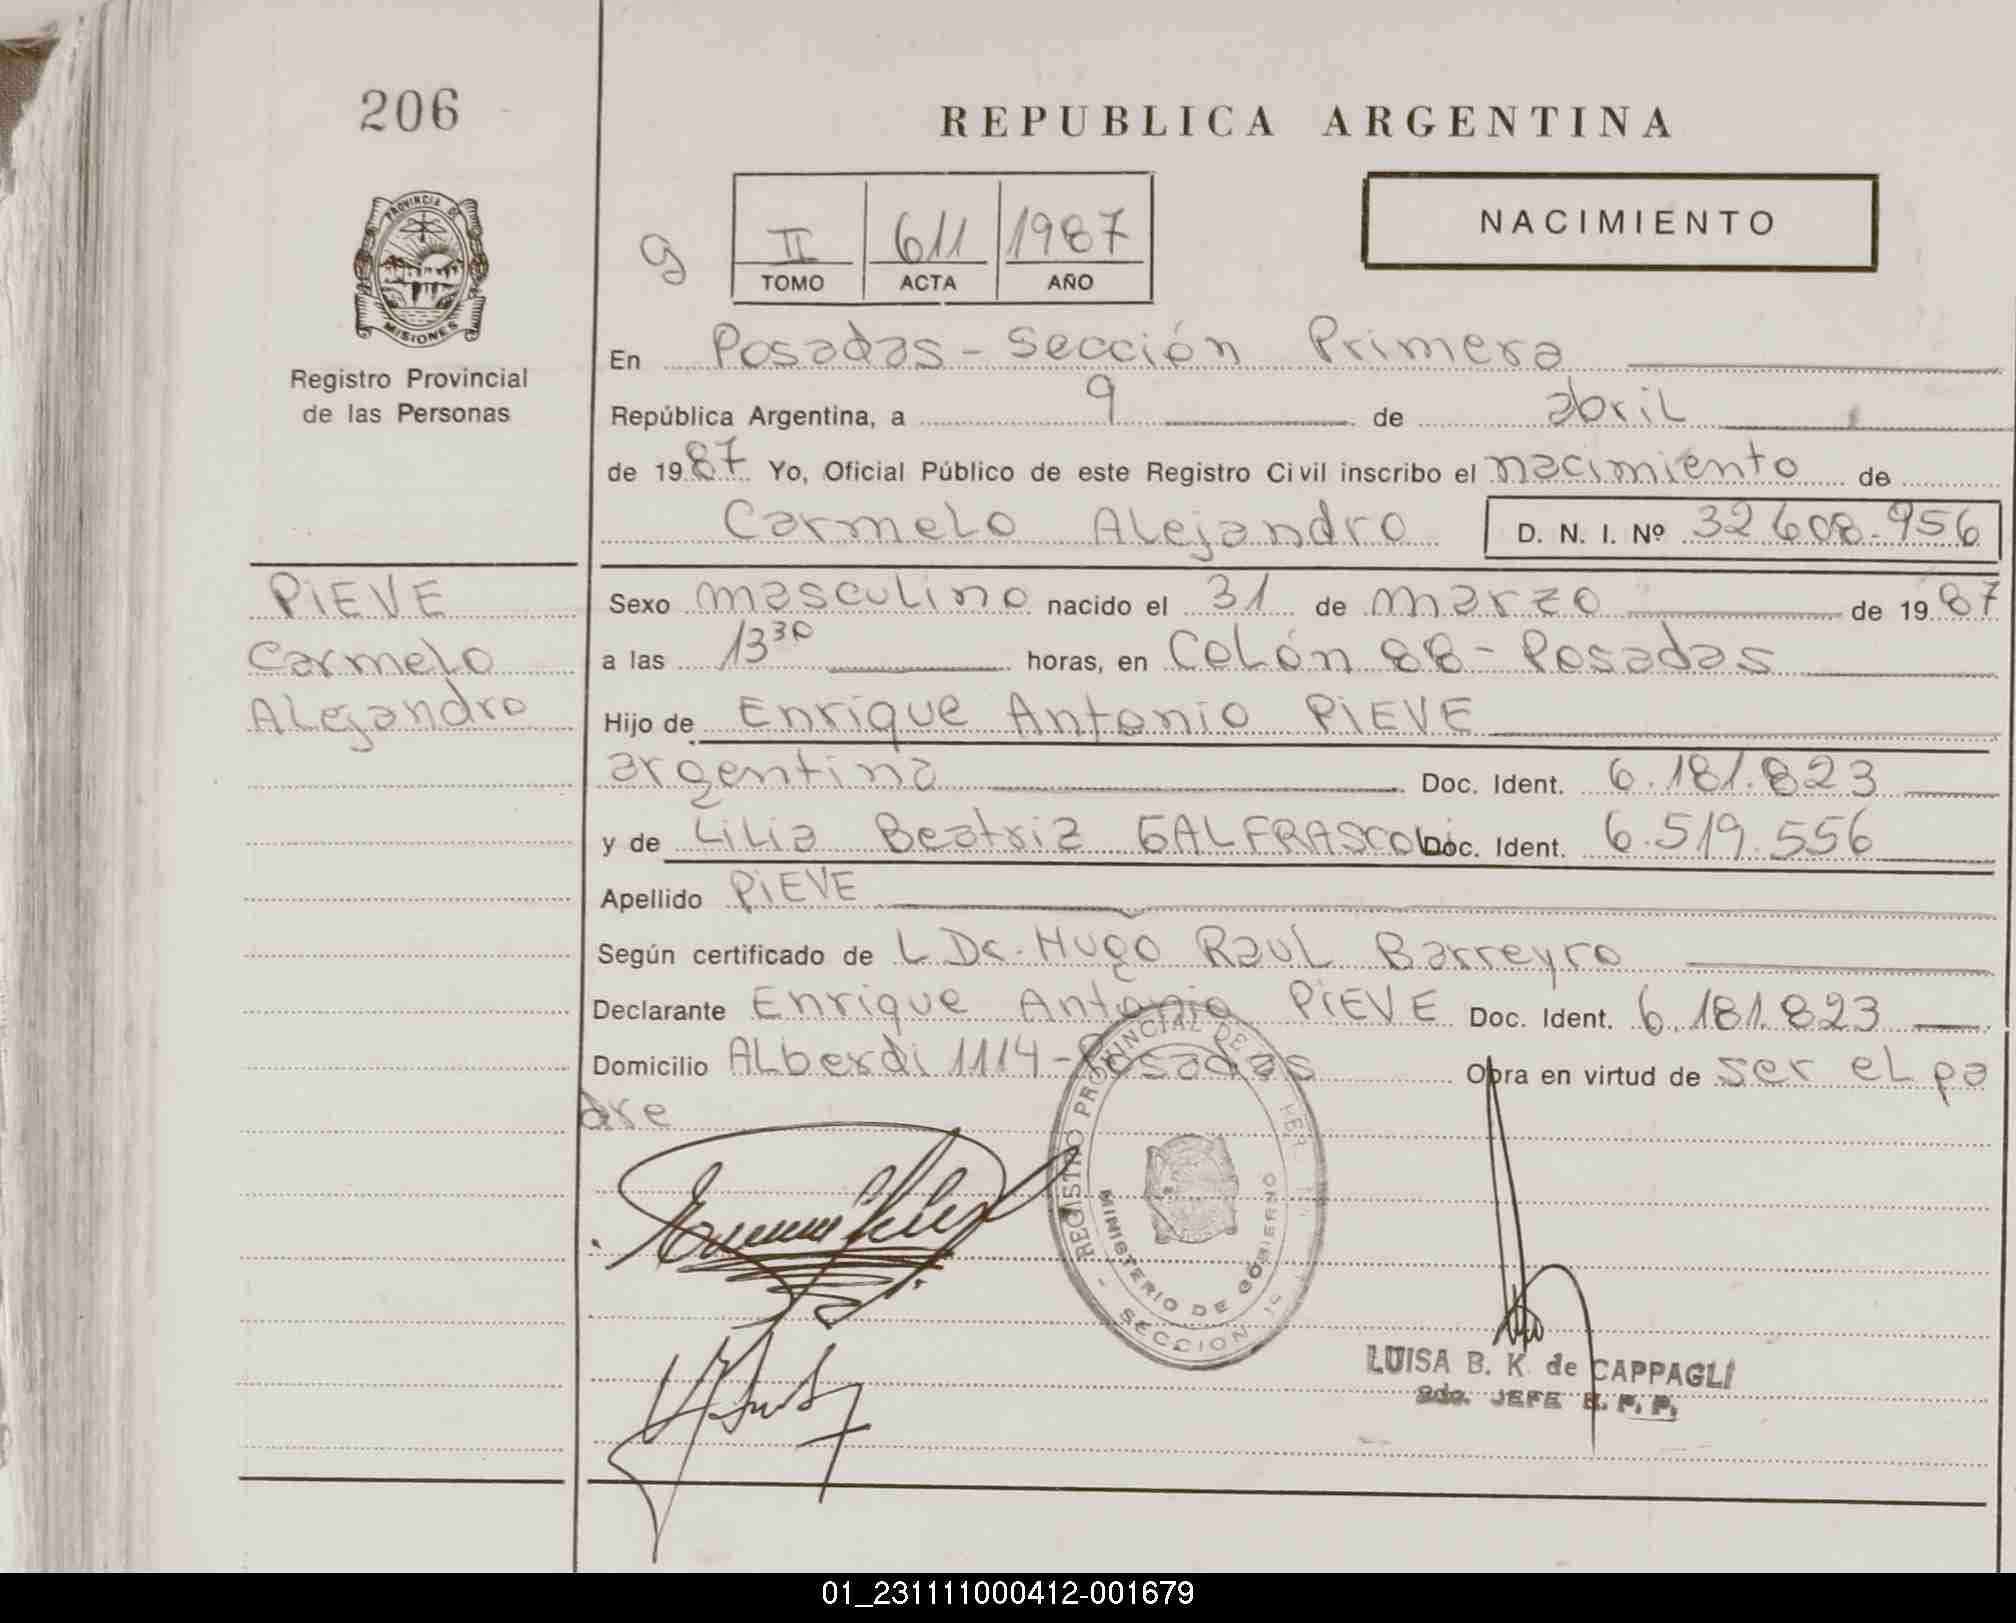 206
REPUBLICA ARGENTINA
PROVINCIA DE
MISIONES
Registro Provincial
de las Personas
g
II 611 1987
TOMO ACTA AÑO
NACIMIENTO
En Posadas - Sección Primera
República Argentina, a 9 de abril
de 1987 Yo, Oficial Público de este Registro Civil inscribo el nacimiento de
Carmelo Alejandro D. N. I. Nº 32608.956
PiEVE
Carmelo
Alejandro
Sexo masculino nacido el 31 de marzo de 1987
a las 13 30 horas, en Colón 88 - Posadas
Hijo de Enrique Antonio PiEVE
argentina Doc. Ident. 6.181.823
y de Lilia Beatriz GALFRASCOLi Doc. Ident. 6.519.556
Apellido PiEVE
Según certificado de L Dr. Hugo Raul Barreyro
Declarante Enrique Antonio PiEVE Doc. Ident. 6.181.823
Domicilio Alberdi 1114 - Posadas Obra en virtud de ser el pa
dre
REGISTRO PROVINCIAL DE
MINISTERIO DE GOBIERNO
- SECCION 1ª
LUISA B. K. de CAPPAGLI
2do. JEFE R. P. P.
01_231111000412-001679